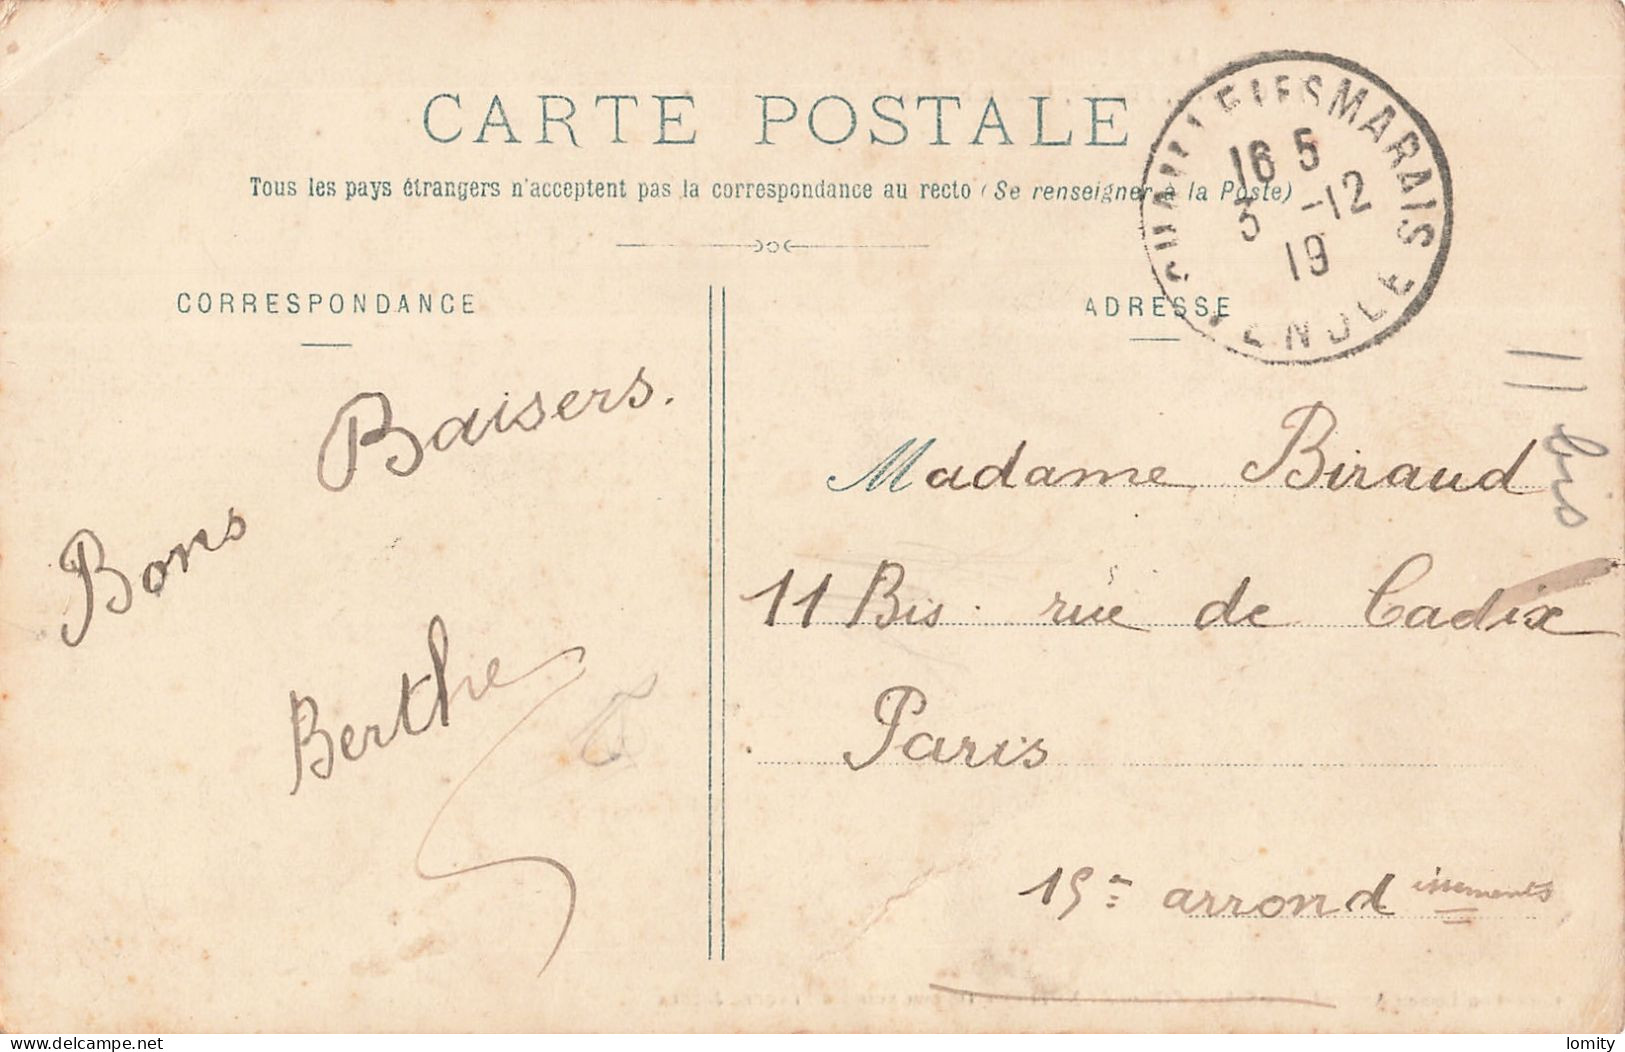 CARTE POSTALE
Tous les pays étrangers n'acceptent pas la correspondance au recto (Se renseigner à la Poste)
CHAILLE LES MARAIS
16 5
3 -12
19
VENDEE
CORRESPONDANCE
ADRESSE
Bons Baisers.
Berthe
Madame Biraud
11 Bis rue de Cadix
Paris
15e arrondissements
11 bis
www.delcampe.net
lomity